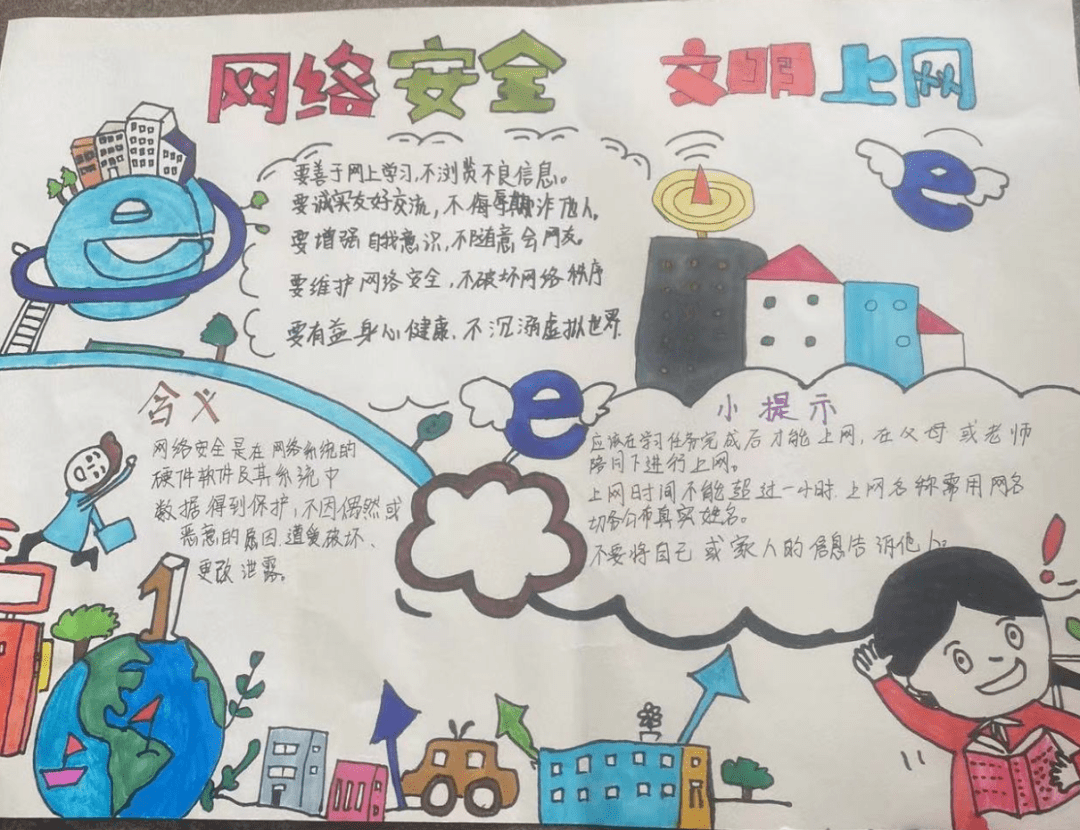 网络安全 文明上网
要善于网上学习,不浏览不良信息。
要诚实友好交流,不侮辱欺诈他人。
要增强自我意识,不随意会网友。
要维护网络安全,不破坏网络秩序
要有益身心健康,不沉溺虚拟世界.
含义
网络安全是在网络系统的
硬件软件及其系统中
数据得到保护,不因偶然或
恶意的原因遭受破坏、
更改泄露。
小提示
应该在学习任务完成后才能上网,在父母或老师
陪同下进行上网。
上网时间不能超过一小时.上网名称需用网名
切务公布真实姓名。
不要将自己或家人的信息告诉他人。
e
e
e
1